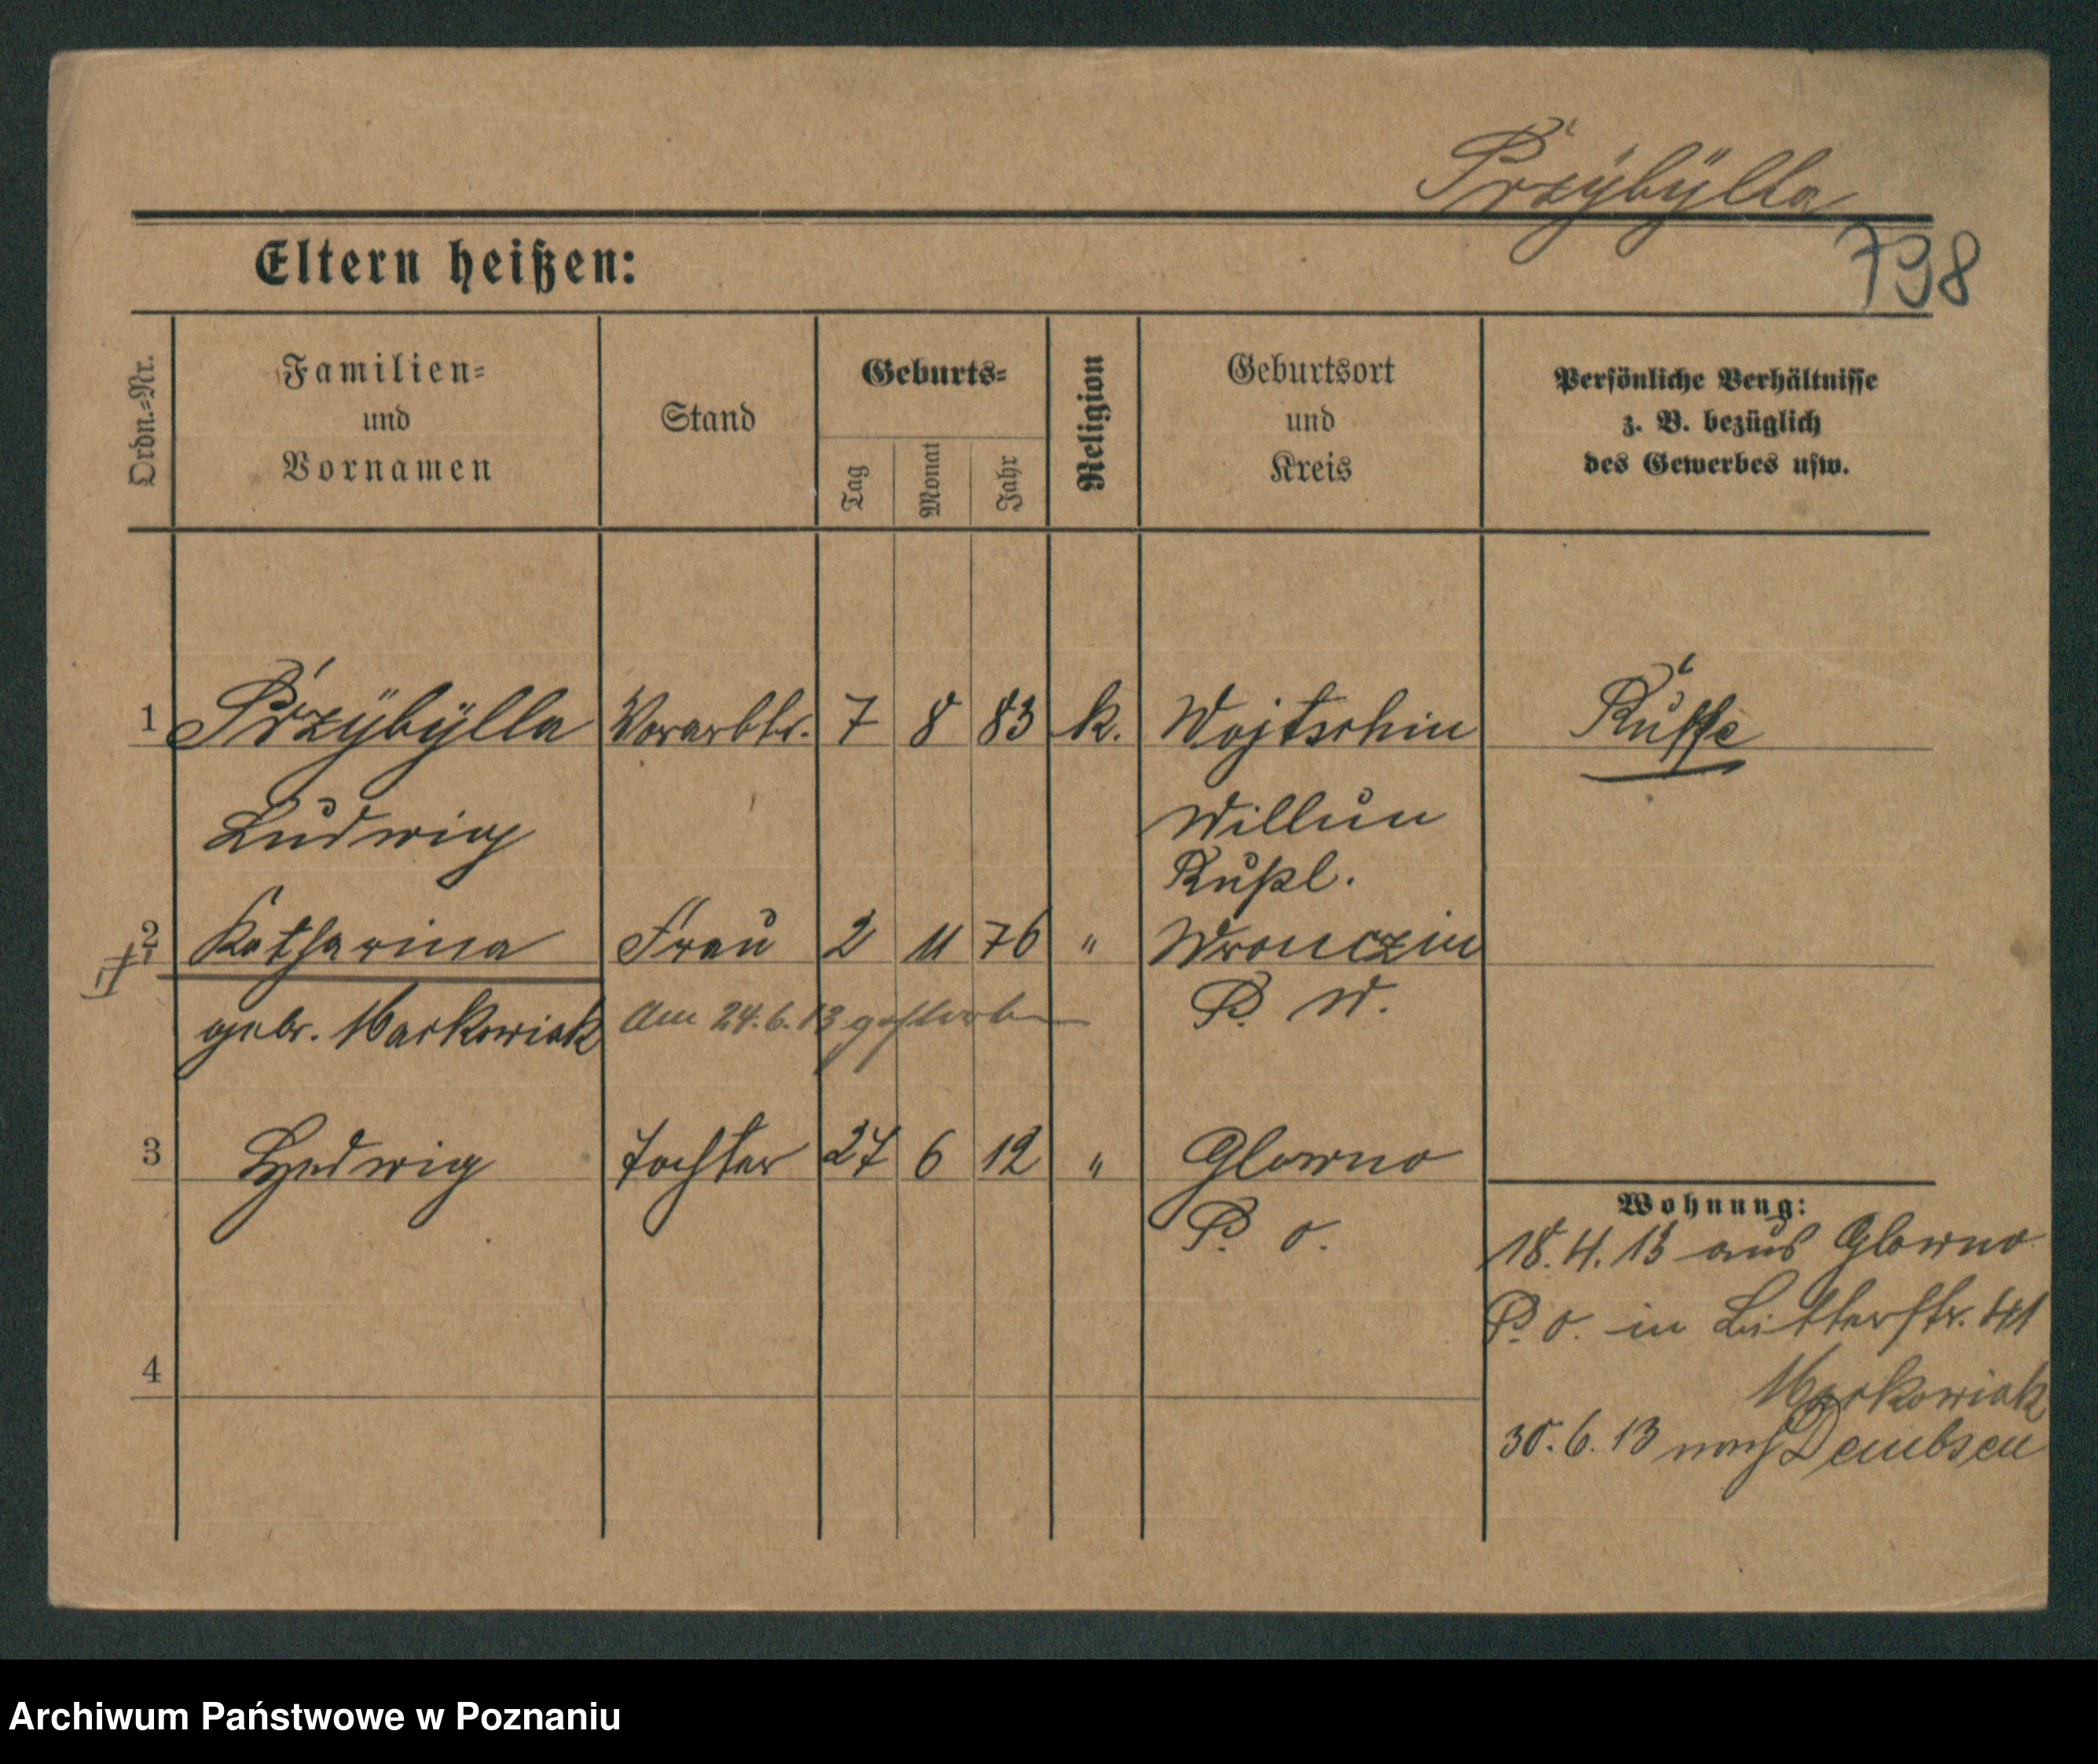 Przÿbÿlla
798
Eltern heißen:
Ordn.=Nr.
Familien=
und
Vornamen
Stand
Geburts=
Tag
Monat
Jahr
Religion
Geburtsort
und
Kreis
Persönliche Verhältnisse
z. B. bezüglich
des Gewerbes usw.
1 Przÿbÿlla Vorarbtr. 7 8 83 k. Wojtschin Russe
Ludwig Willun
Rußl.
2 Katharina Frau 2 11 76 " Wronczin
gebr. Markowiak Am 24.6.13 gestorben P. W.
3 Hedwig Tochter 27 6 12 " Glowno
P. O.
Wohnung:
18.4.13 aus Glowno
P. O. in Bitterstr. 41
4
Markowiak
30.6.13 nach Dembsen
Archiwum Państwowe w Poznaniu